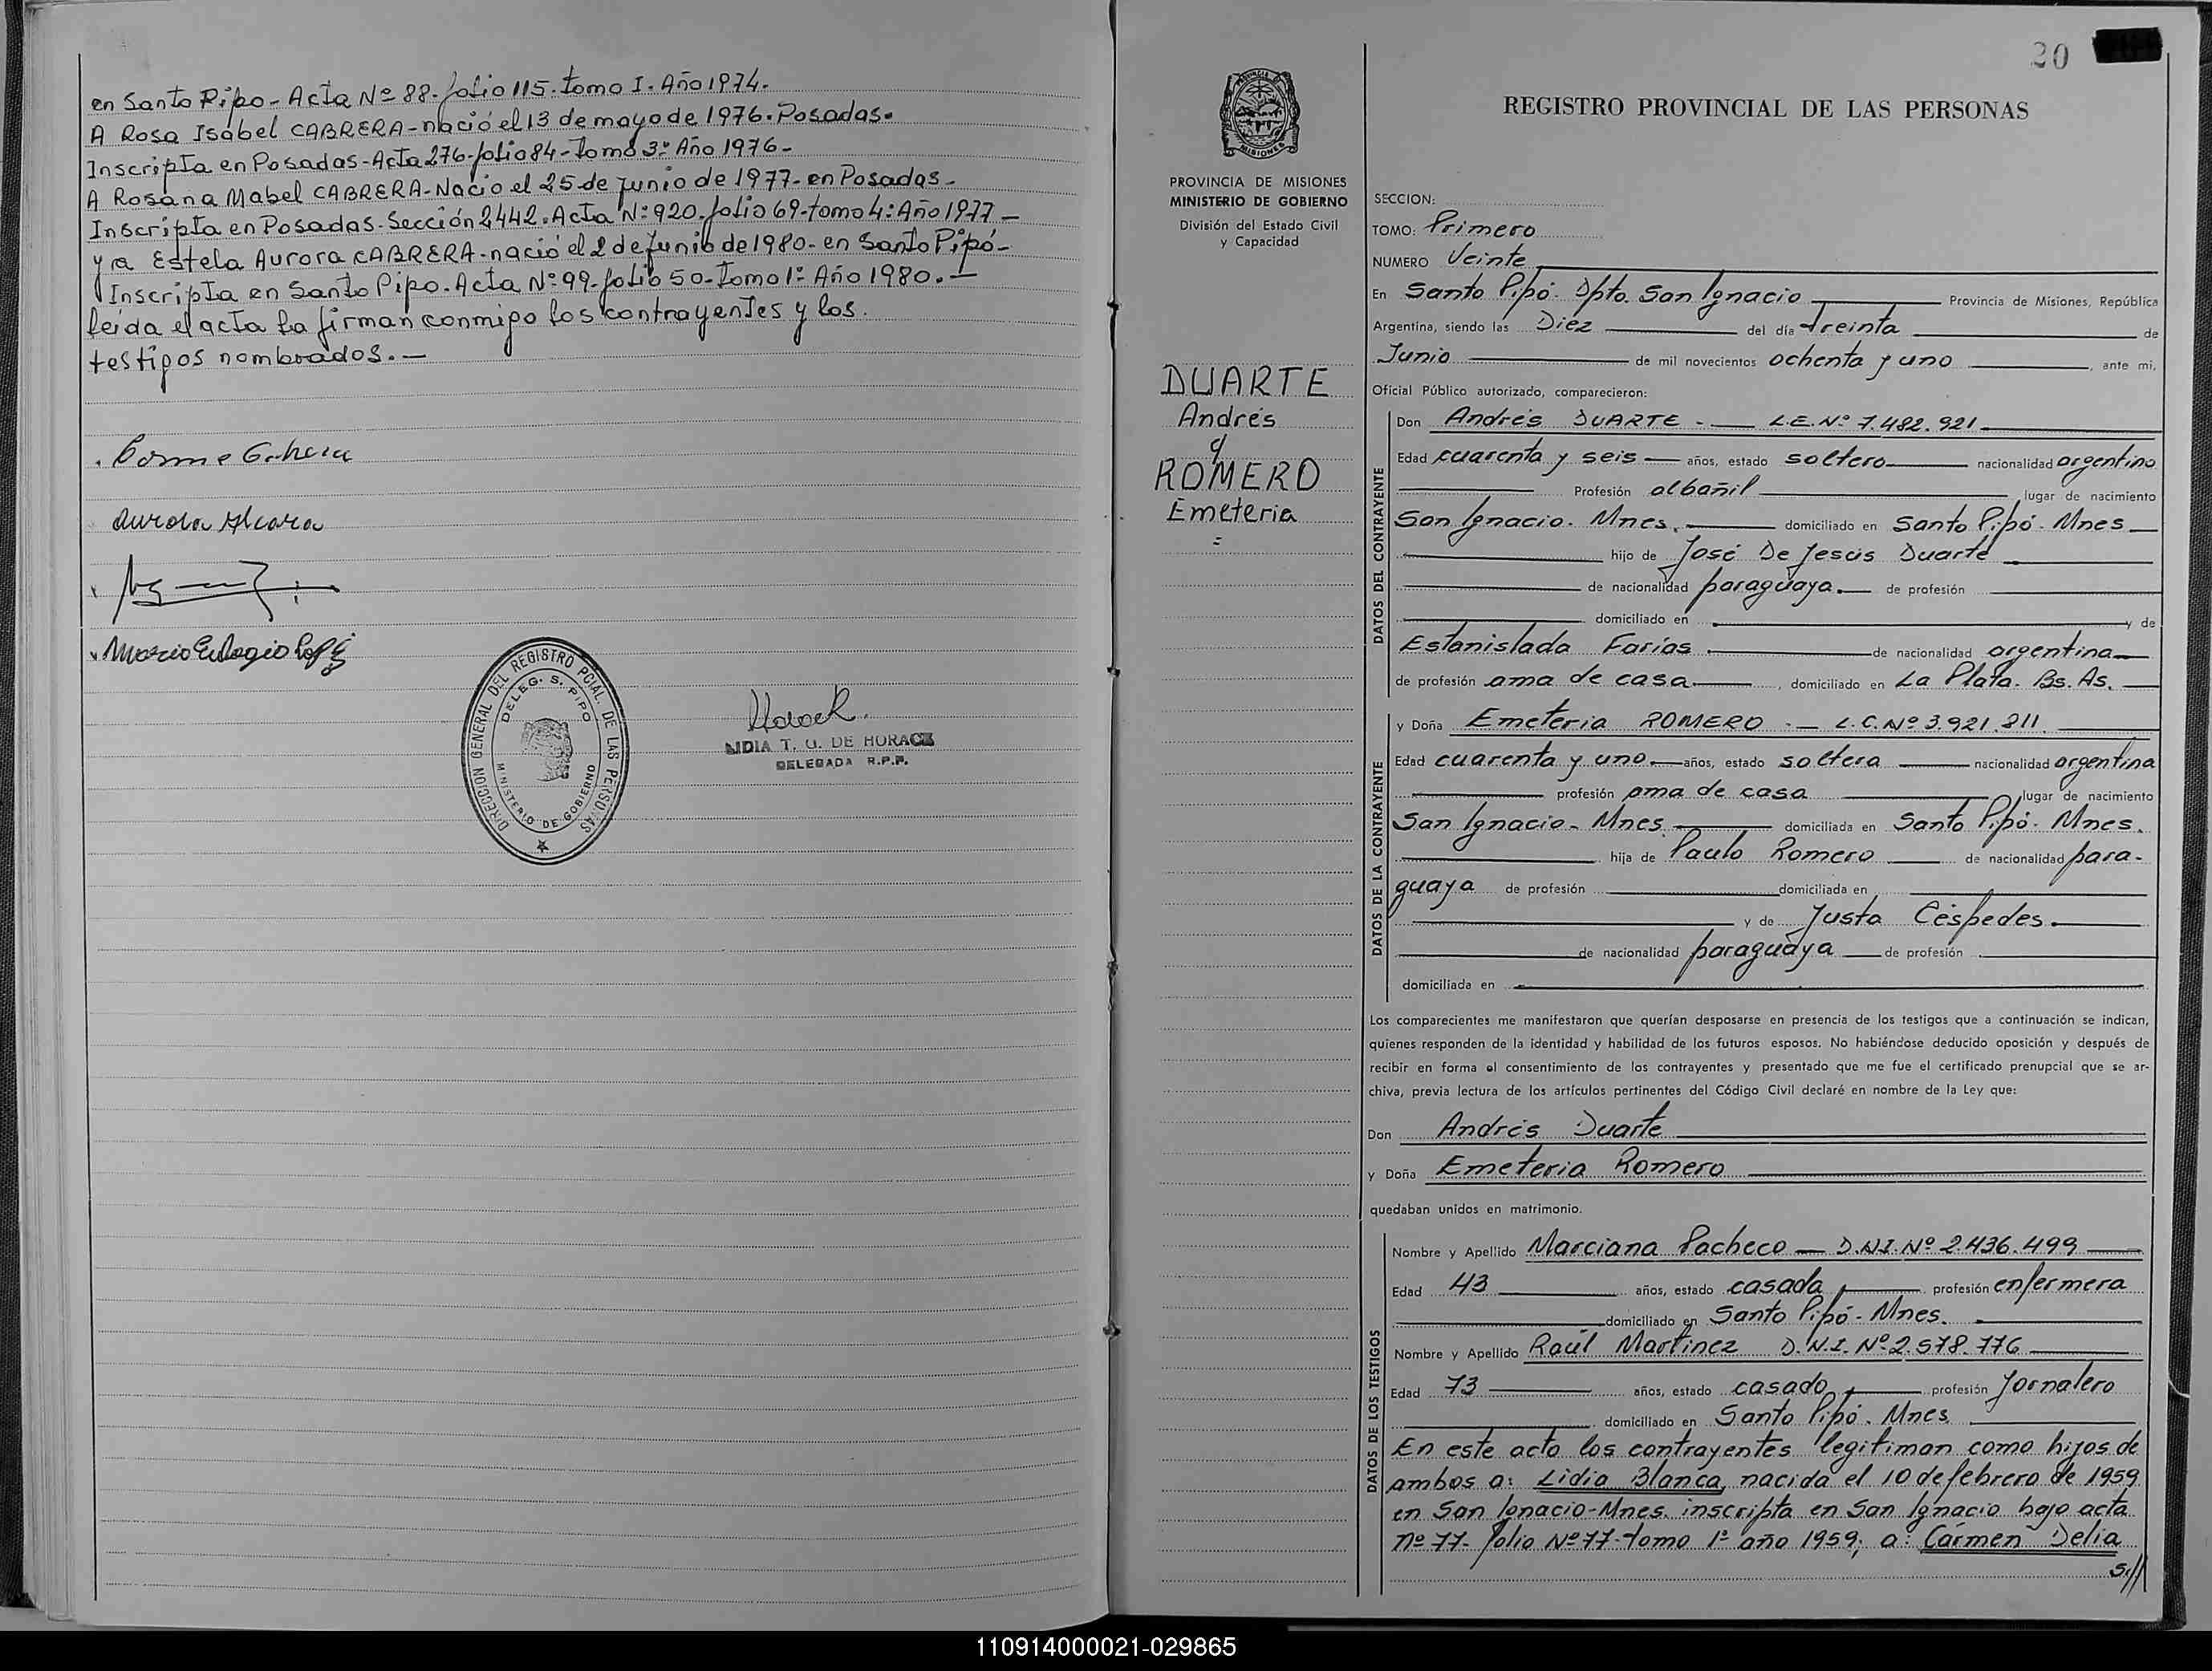 en Santo Pipo - Acta Nº 88. folio 115. tomo I. Año 1974.
A Rosa Isabel CABRERA - nació el 13 de mayo de 1976. Posadas.
Inscripta en Posadas - Acta 276 - folio 84 - Tomo 3º Año 1976 -
A Rosana Mabel CABRERA - Nacio el 25 de junio de 1977 - en Posadas -
Inscripta en Posadas. Sección 2442. Acta Nº 920. folio 69 - tomo 4º Año 1977 -
y a Estela Aurora CABRERA - nació el 2 de junio de 1980 - en Santo Pipó -
Inscripta en Santo Pipo. Acta Nº 99 - folio 50 - Tomo 1º Año 1980. -
leída el acta la firman conmigo los contrayentes y los
testigos nombrados. -
DIRECCION GENERAL DEL REGISTRO PCIAL. DE LAS PERSONAS
DELEG. S. PIPO
MINISTERIO DE GOBIERNO
LIDIA T. G. DE HORACK
DELEGADA R.P.P.
20
PROVINCIA DE MISIONES
MINISTERIO DE GOBIERNO
División del Estado Civil
y Capacidad
DUARTE
Andrés
y
ROMERO
Emeteria
=
REGISTRO PROVINCIAL DE LAS PERSONAS
SECCION:
TOMO: Primero
NUMERO Veinte
En Santo Pipó. Dpto. San Ignacio Provincia de Misiones, República
Argentina, siendo las Diez del día Treinta de
Junio de mil novecientos ochenta y uno, ante mi,
Oficial Público autorizado, comparecieron:
DATOS DEL CONTRAYENTE
Don Andrés DUARTE. - L.E. Nº 7.482.921
Edad cuarenta y seis años, estado soltero nacionalidad argentino
Profesión albañil lugar de nacimiento
San Ignacio. Mnes. domiciliado en Santo Pipó. Mnes
hijo de José De Jesús Duarte
de nacionalidad paraguaya. de profesión
domiciliado en y de
Estanislada Farías. de nacionalidad argentina
de profesión ama de casa, domiciliado en La Plata. Bs. As.
DATOS DE LA CONTRAYENTE
y Doña Emeteria ROMERO. - L.C. Nº 3.921.811.
Edad cuarenta y uno. años, estado soltera nacionalidad argentina
profesión ama de casa lugar de nacimiento
San Ignacio - Mnes. domiciliada en Santo Pipó. Mnes.
hija de Paulo Romero de nacionalidad para-
guaya de profesión domiciliada en
y de Justa Céspedes.
de nacionalidad paraguaya de profesión
domiciliada en
Los comparecientes me manifestaron que querían desposarse en presencia de los testigos que a continuación se indican,
quienes responden de la identidad y habilidad de los futuros esposos. No habiéndose deducido oposición y después de
recibir en forma el consentimiento de los contrayentes y presentado que me fue el certificado prenupcial que se ar-
chiva, previa lectura de los artículos pertinentes del Código Civil declaré en nombre de la Ley que:
Don Andrés Duarte
y Doña Emeteria Romero
quedaban unidos en matrimonio.
DATOS DE LOS TESTIGOS
Nombre y Apellido Marciana Pacheco - D.N.I. Nº 2.436.499
Edad 43 años, estado casada profesión enfermera
domiciliado en Santo Pipó - Mnes.
Nombre y Apellido Raúl Martínez D.N.I. Nº 2.578.776
Edad 73 años, estado casado profesión Jornalero
domiciliado en Santo Pipó. Mnes
En este acto los contrayentes legitiman como hijos de
ambos a: Lidia Blanca, nacida el 10 de febrero de 1959
en San Ignacio - Mnes. inscripta en San Ignacio bajo acta
nº 77 - folio Nº 77 - tomo 1º año 1959; a: Cármen Delia
s.//
110914000021-029865